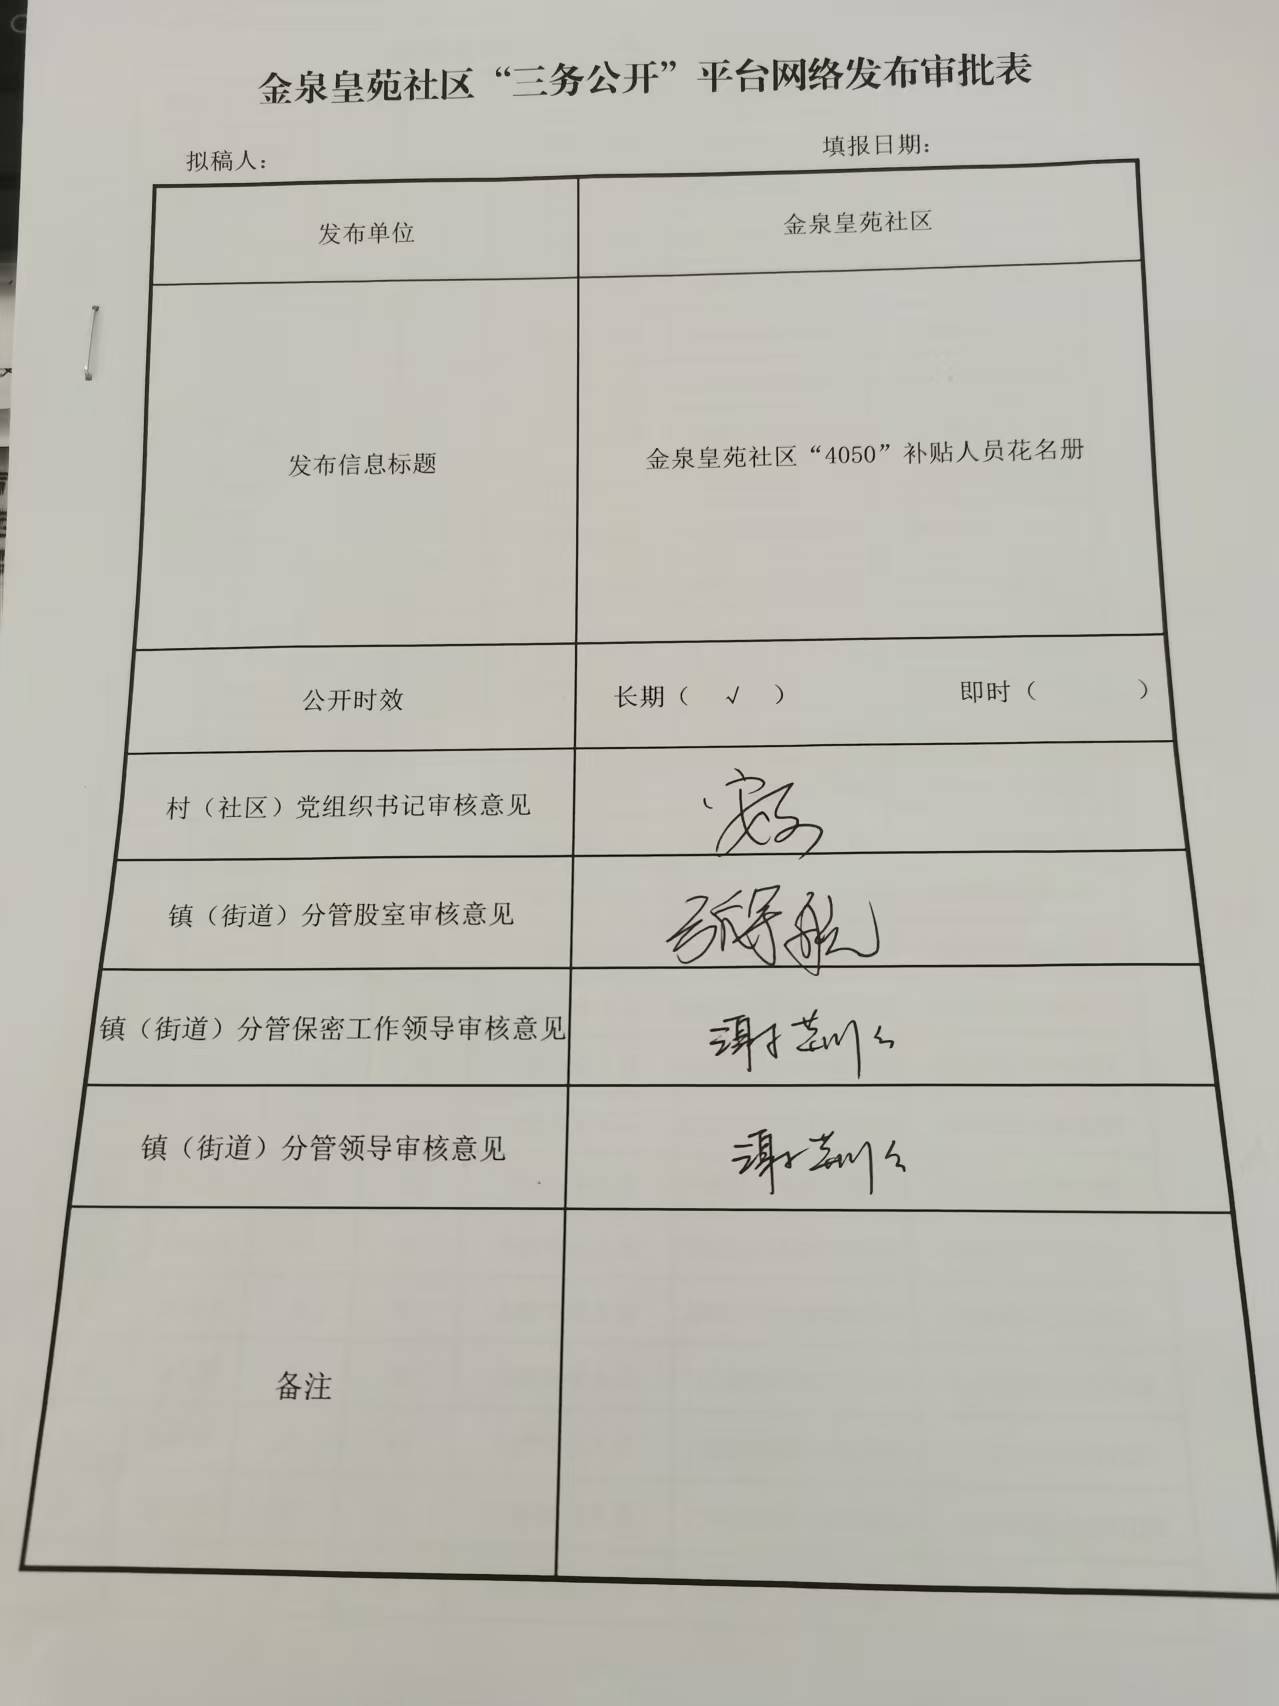 金泉皇苑社区“三务公开”平台网络发布审批表
拟稿人： 填报日期：
发布单位 金泉皇苑社区
发布信息标题 金泉皇苑社区“4050”补贴人员花名册
公开时效 长期（ √ ） 即时（ ）
村（社区）党组织书记审核意见
镇（街道）分管股室审核意见
镇（街道）分管保密工作领导审核意见
镇（街道）分管领导审核意见
备注